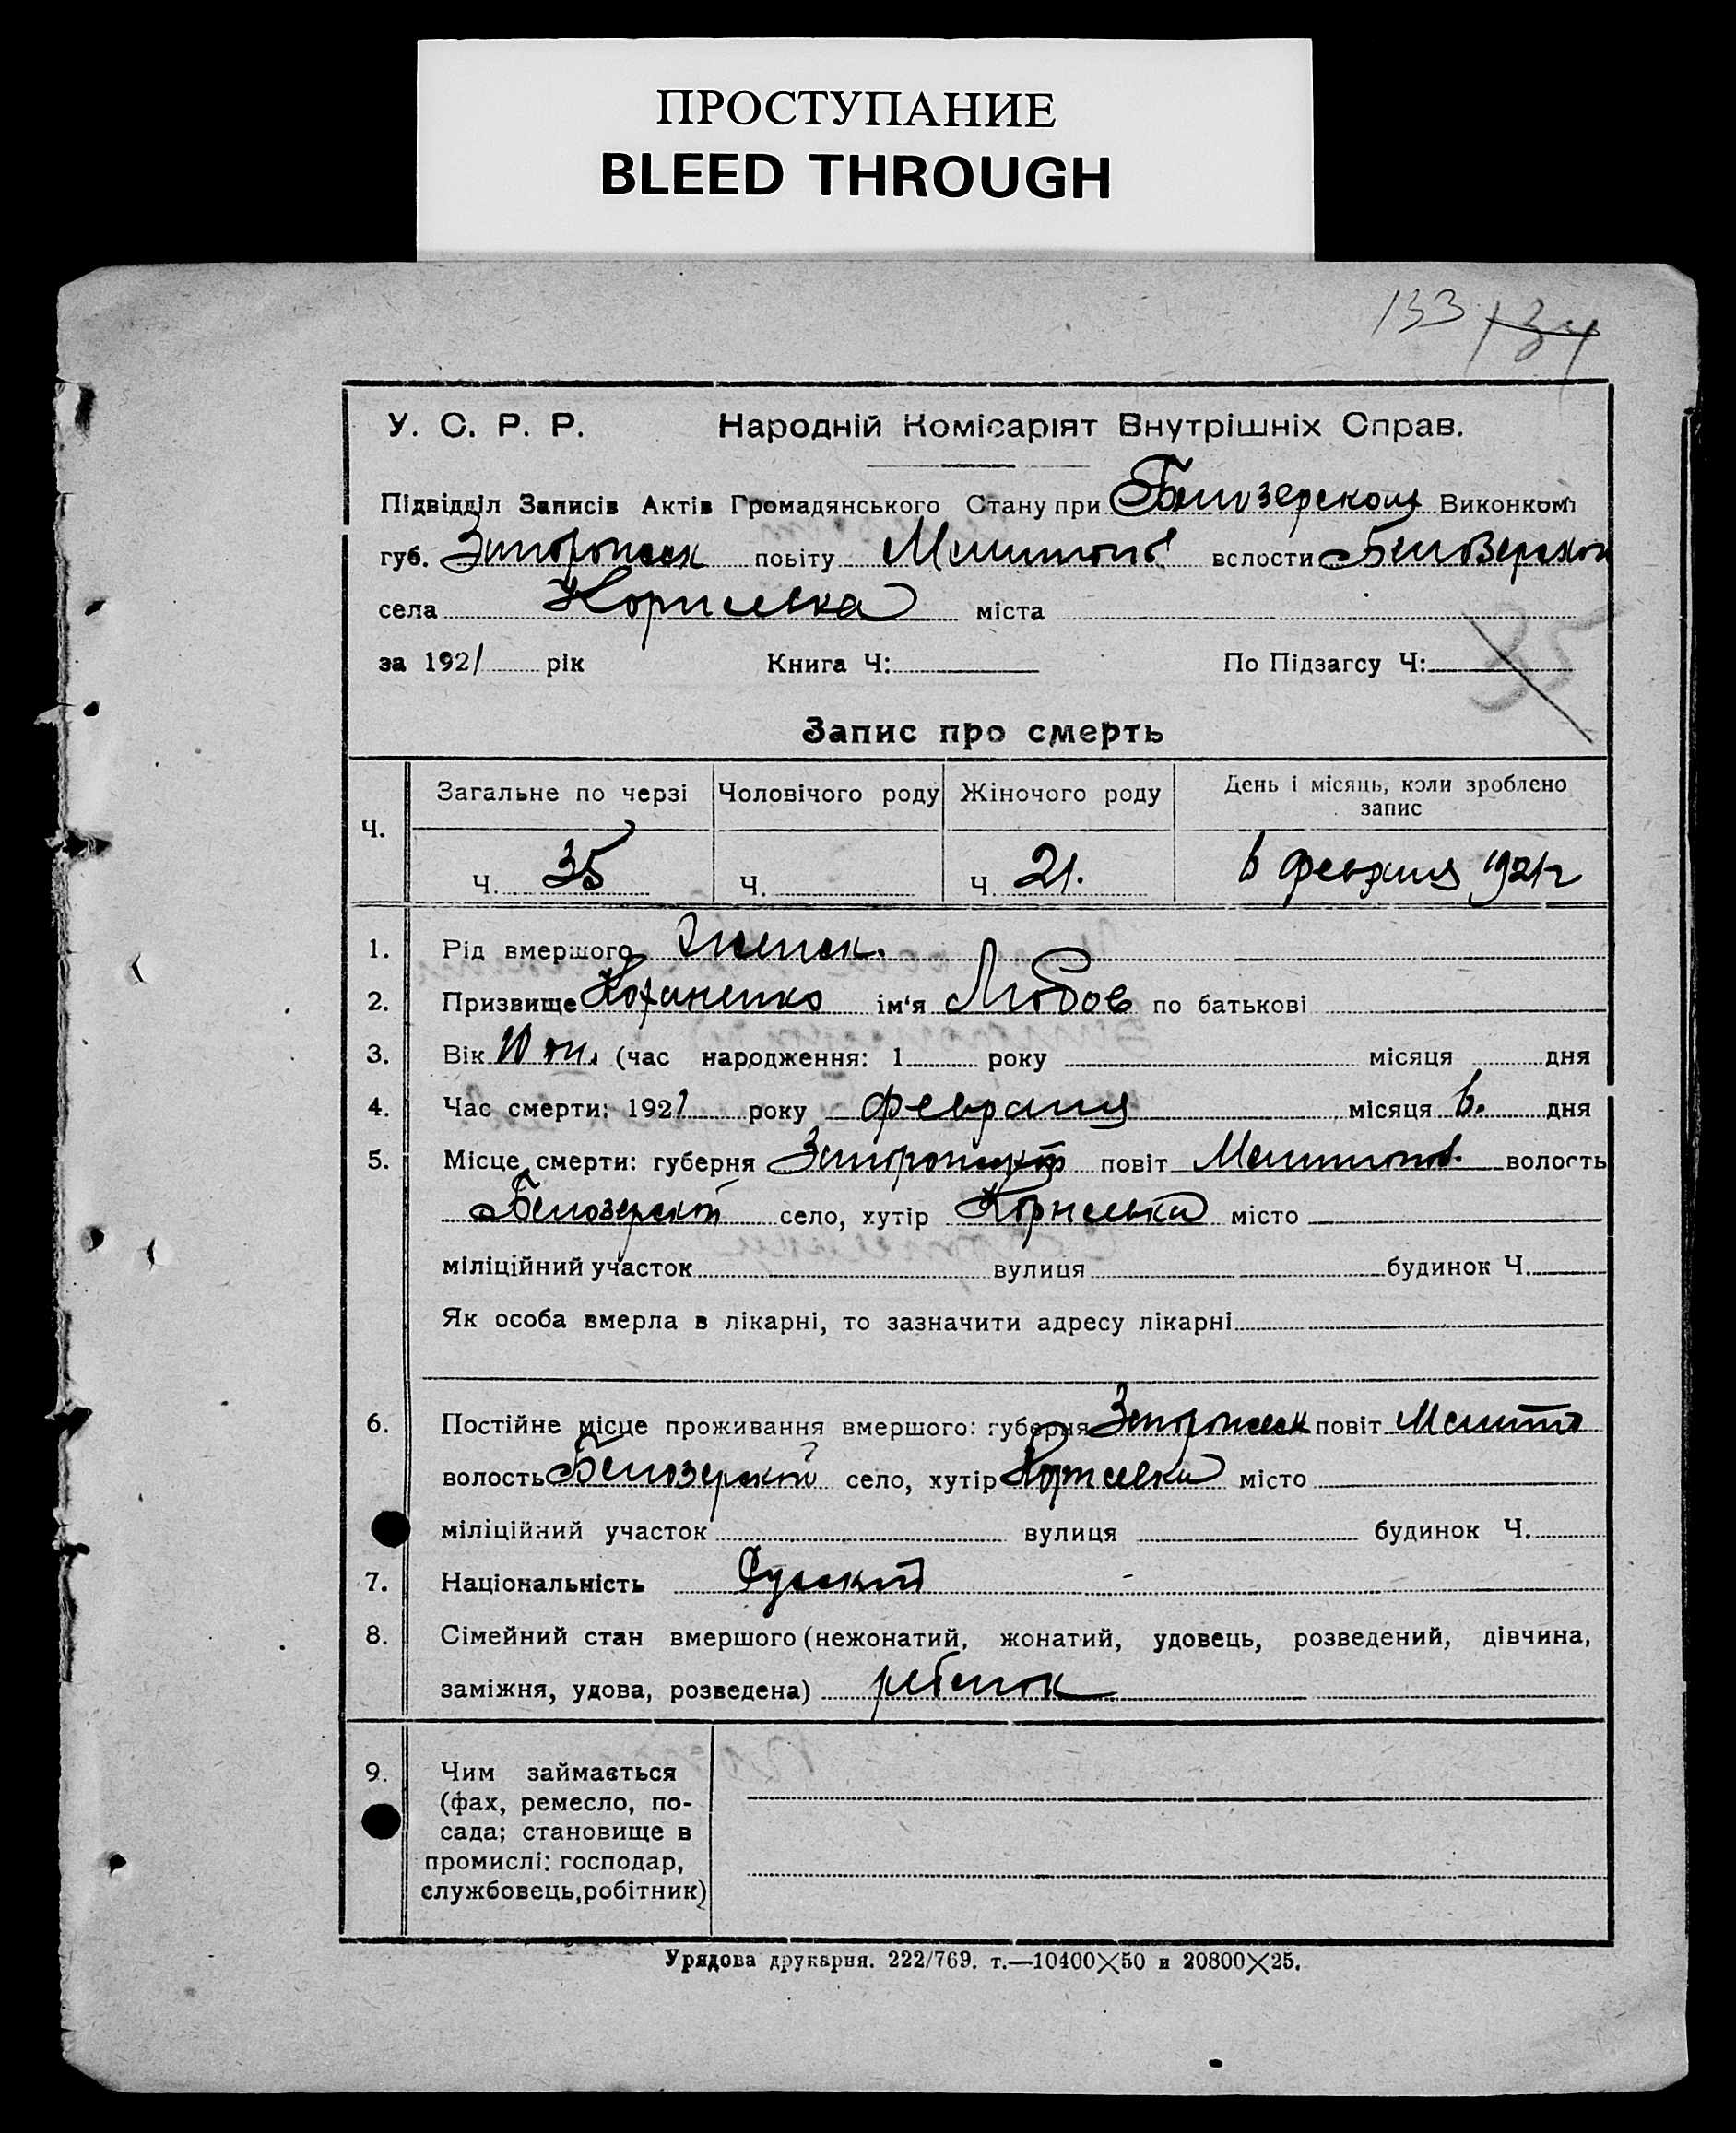 ПРОСТУПАНИЕ
BLEED THROUGH
133 134
У. С. Р. Р. Народній Комісаріят Внутрішніх Справ.
Підвідділ Записів Актів Громадянського Стану при Белозерском Виконкомі
губ. Запорожск повіту Мелитопо волости Белозерской
села Корнеевка міста
за 1921 рік Книга Ч: По Підзагсу Ч:
Запис про смерть
Ч. Загальне по черзі Чоловічого роду Жіночого роду День і місяць, коли зроблено
запис
Ч. 35 Ч. Ч. 21. 6 февраля 1921 г
1. Рід вмершого Женск.
2. Призвище Коханенко ім'я Любов по батькові
3. Вік 10 (час народження: 1 року місяця дня
4. Час смерти: 1921 року февраля місяця 6. дня
5. Місце смерти: губерня Запорожской повіт Мелитопов. волость
Белозерской село, хутір Корнеевка місто
міліційний участок вулиця будинок Ч.
Як особа вмерла в лікарні, то зазначити адресу лікарні
6. Постійне місце проживання вмершого: губерня Запорожск повіт Мелитто
волость Белозерской село, хутір Корнеевка місто
міліційний участок вулиця будинок Ч.
7. Національність Русский
8. Сімейний стан вмершого (нежонатий, жонатий, удовець, розведений, дівчина,
заміжня, удова, розведена) ребенок
9. Чим займається
(фах, ремесло, по-
сада; становище в
промислі: господар,
службовець, робітник)
Урядова друкарня. 222/769. т.—10400×50 и 20800×25.